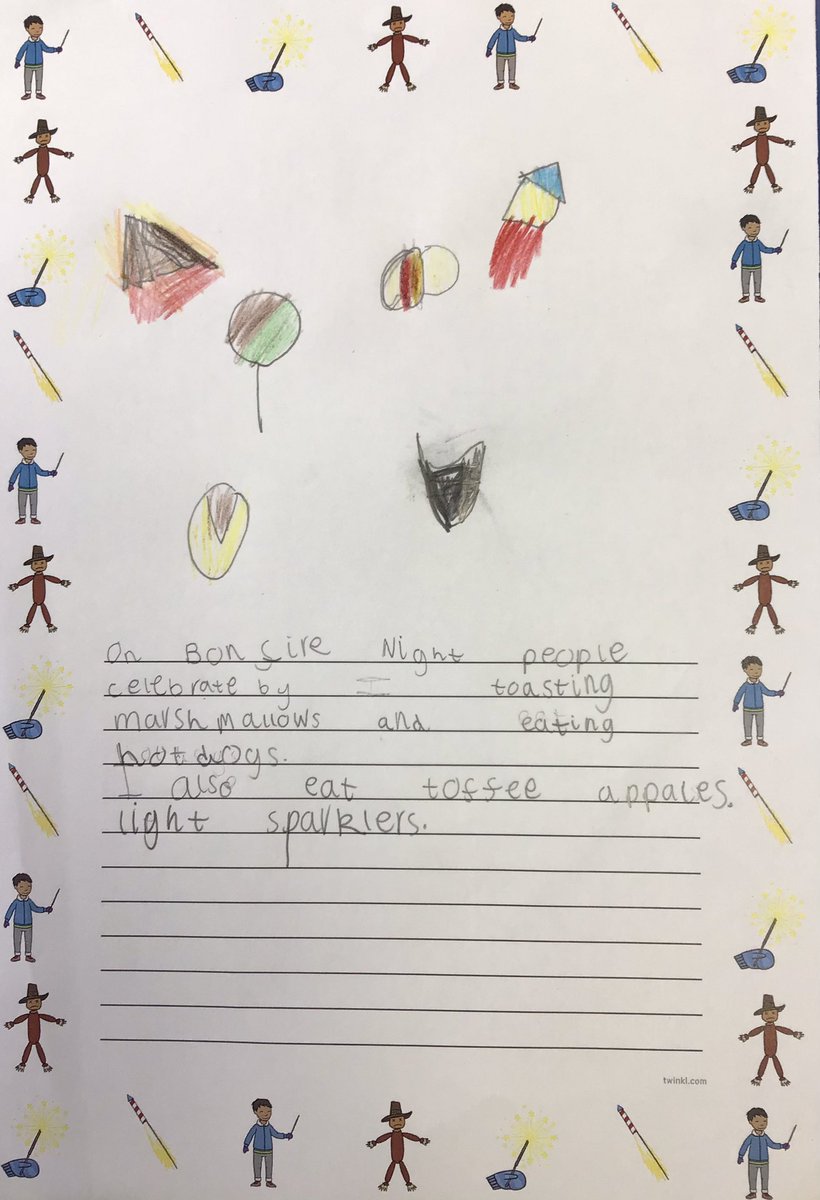 On Bonfire Night people
celebrate by I toasting
marshmallows and eating
hotdogs.
I also eat toffee appales.
light sparklers.
twinkl.com